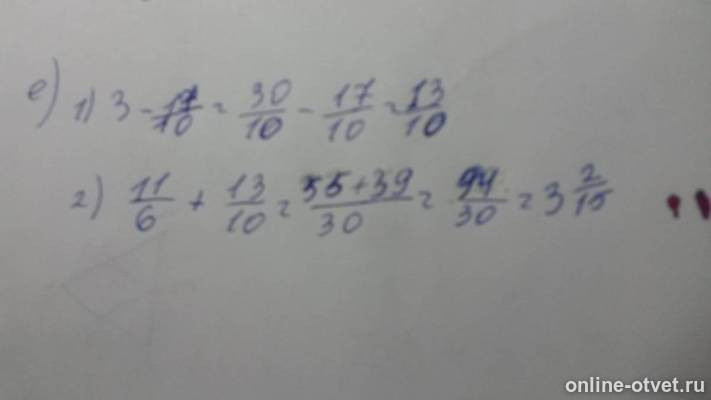 е) 1) 3 - 17/10 = 30/10 - 17/10 = 13/10
2) 11/6 + 13/10 = 55+39/30 = 94/30 = 3 2/15
online-otvet.ru